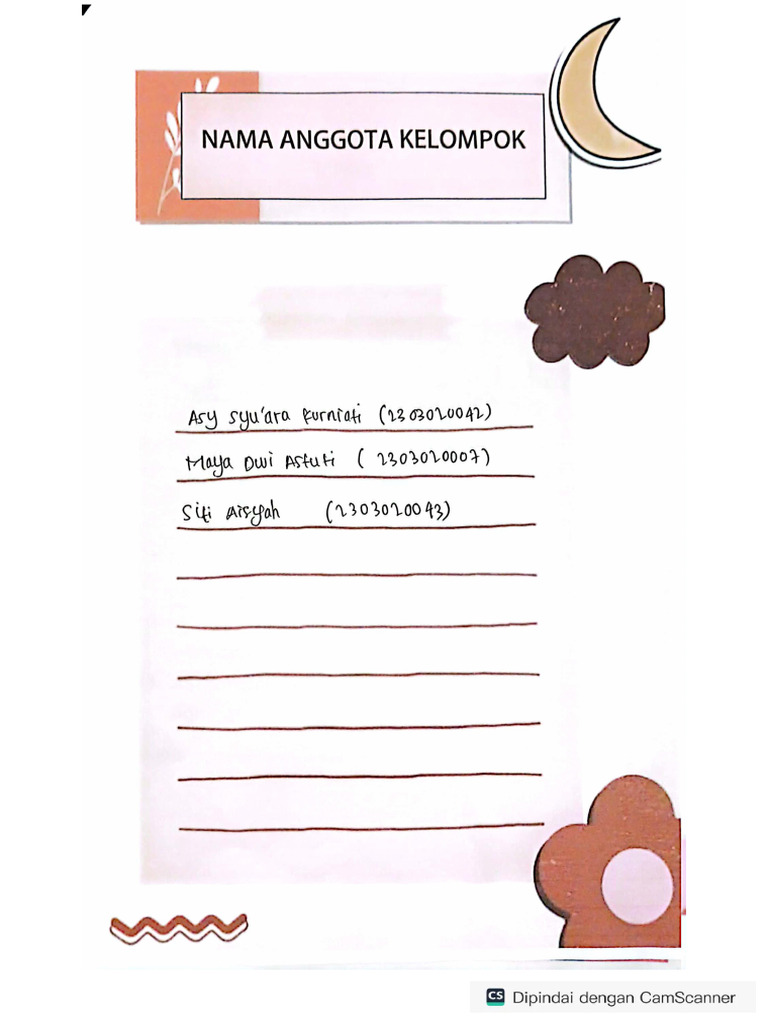 NAMA ANGGOTA KELOMPOK
Asy Syu'ara Kurniati (2303020042)
Maya Dwi Astuti ( 2303020007)
Siti Aisyah (2303020043)
CS Dipindai dengan CamScanner